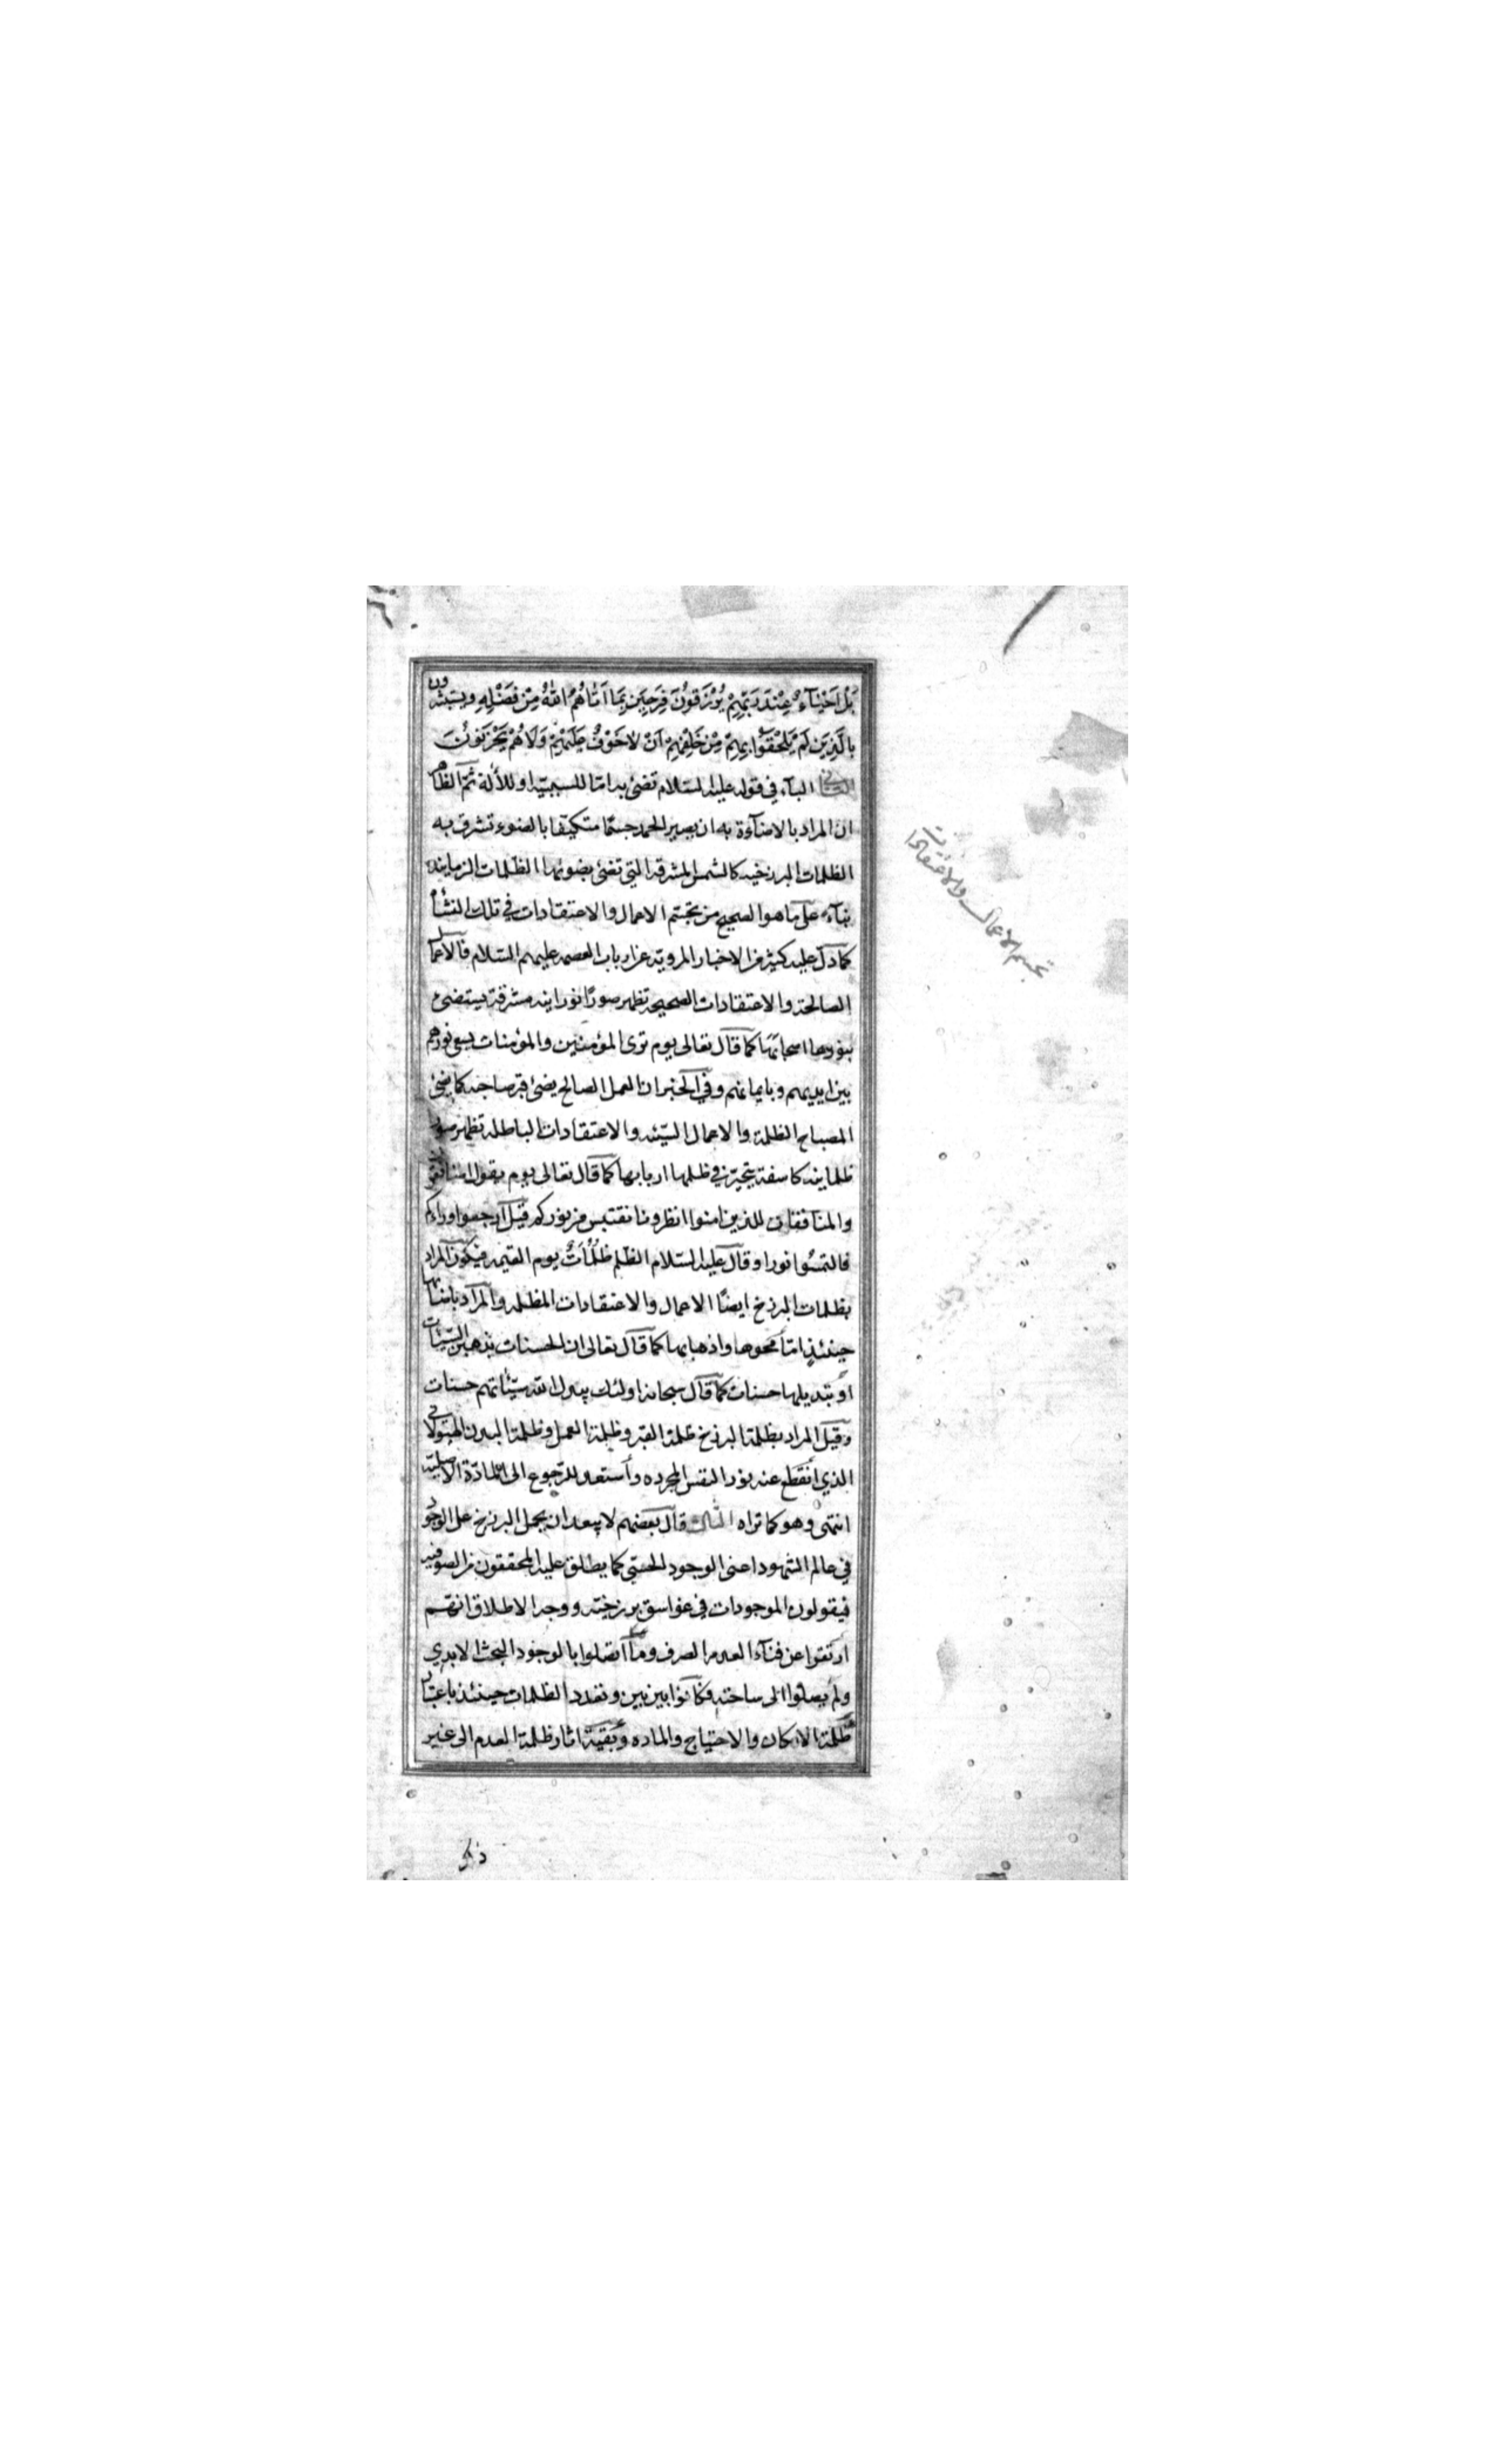 بَلْ اَحْيَآءٌ عِنْدَ رَبِّهِمْ يُرْزَقُونَ فَرِحِينَ بِمَا اَتَاهُمُ اللّٰهُ مِنْ فَضْلِهِ وَيَسْتَبْشِرُونَ
بِالَّذِينَ لَمْ يَلْحَقُوا بِهِمْ مِنْ خَلْفِهِمْ اَنْ لَا خَوْفٌ عَلَيْهِمْ وَلَا هُمْ يَحْزَنُونَ
الثاني البآء في قوله عليه السّلام تضئ به امّا للسببيّه او للألة ثمّ الظاهر
ان المراد بالاضآءة به ان يصير الحمد جسمًا متكيفا بالضوء تشرق به
الظلمات البرزخيه كالشمس المشرقه التي تضئ بضوئها الظلمات الزمانيه
بنآء على ما هو الصحيح من تجسّم الاعمال والاعتقادات في تلك النشأة
كما دلّ عليه كثير من الاخبار المرويّه عن ارباب العصمه عليهم السّلام فالاعمال
الصالحة والاعتقادات الصحيحه تظهر صورًا نورانيه مشرقة يستضئ
بنورها اصحابها كما قال تعالى يوم ترى المؤمنين والمؤمنات يسعى نورهم
بين ايديهم وبايمانهم وفي الخبر ان العمل الصالح يضئ قبر صاحبه كما يضئ
المصباح الظلمة والاعمال السّيّئه والاعتقادات الباطله تظهر صورا
ظلمانيه كاسفة يتحيّر في ظلمها اربابها كما قال تعالى يوم يقول المنافقون
والمنافقات للذين امنوا انظرونا نقتبس من نوركم قيل ارجعوا وراءكم
فالتمسُوا نورا وقال عليه السّلام الظلم ظُلُمَاتٌ يوم القيمه فيكون المراد
بظلمات البرزخ ايضًا الاعمال والاعتقادات المظلمه والمراد باضائتها
حينئذٍ امّا محوها واذهابها كما قال تعالى ان الحسنات يذهبن السّيئات
او تبديلها حسنات كما قال سبحانه اولئك يبدل الله سيّئاتهم حسنات
وقيل المراد بظلمة البرزخ ظلمة القبر وظلمة العمل وظلمة البدن الهيولاني
الذي انقطع عنه نور النفس المجرده وأستعد للرّجوع الى المادّة الاصليّه
انتهى وهو كما تراه الثالث قال بعضهم لا يبعد ان يحمل البرزخ على الوجود
في عالم الشهود اعني الوجود الحسّي كما يطلق عليه المحققون من الصوفيه
فيقولون الموجودات في غواسق برزخيّه ووجه الاطلاق انهم
ارتقوا عن فنآء العدم الصرف وما اتصلوا بالوجود البحث الابدي
ولم يصلوا الى ساحته فكانوا بين بين وتعدد الظلمات حينئذ باعتبار
ظلمة الامكان والاحتياج والماده وبقيّة اثار ظلمة العدم الى غير
ذلك
تجسم الاعمال والاعتقادات